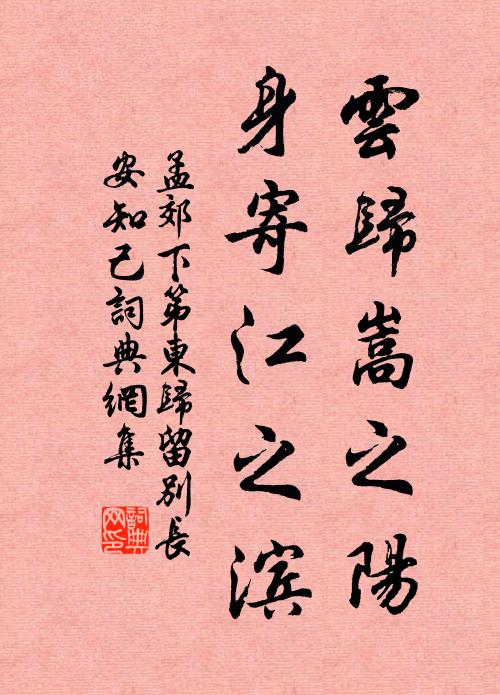 雲歸嵩之陽
身寄江之滨
孟郊下第東歸留别長
安知己詞典網集
詞典
网印